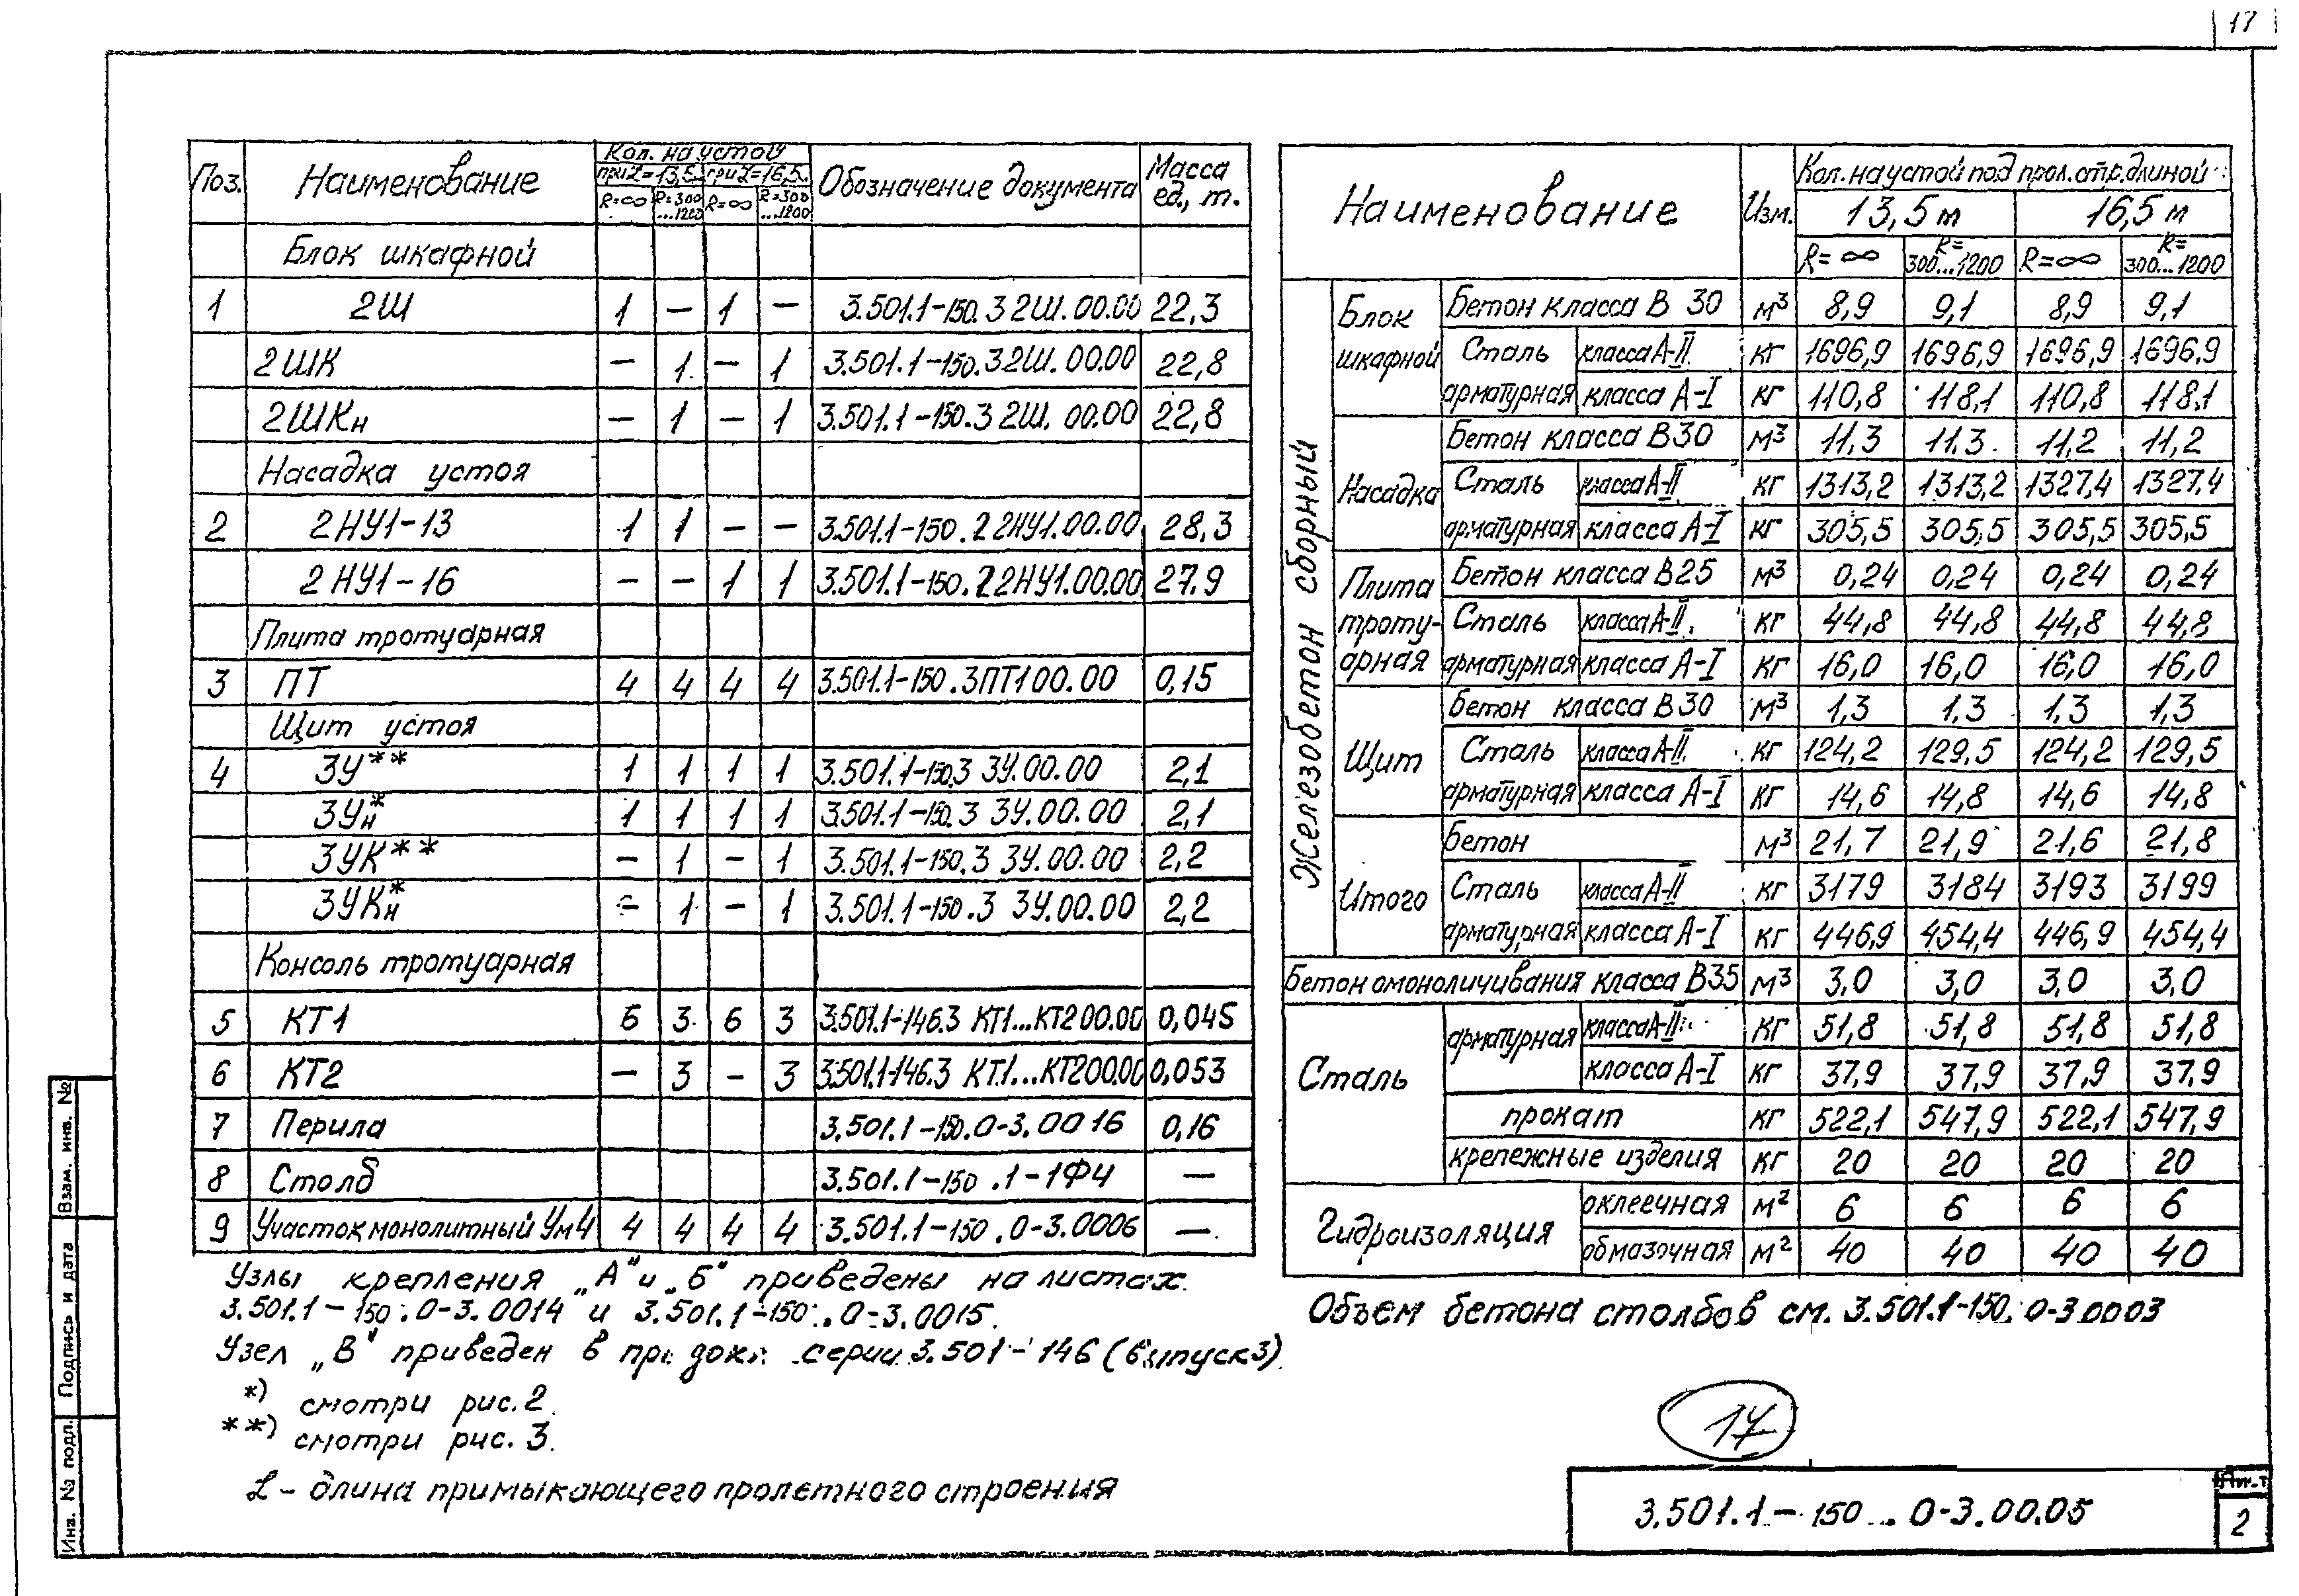 17
Поз. Наименование Кол. на устой Обозначение документа Масса ед., т.
при L=13,5 при L=16,5
R=∞ R=300...1200 R=∞ R=300...1200
Блок шкафной
1 2Ш 1 — 1 — 3.501.1-150.3 2Ш.00.00 22,3
2ШК — 1 — 1 3.501.1-150.3 2Ш.00.00 22,8
2ШКн — 1 — 1 3.501.1-150.3 2Ш.00.00 22,8
Насадка устоя
2 2НУ1-13 1 1 — — 3.501.1-150.2 2НУ1.00.00 28,3
2НУ1-16 — — 1 1 3.501.1-150.2 2НУ1.00.00 27.9
Плита тротуарная
3 ПТ 4 4 4 4 3.501.1-150.3ПТ100.00 0,15
Щит устоя
4 3У** 1 1 1 1 3.501.1-150.3 3У.00.00 2,1
3Ун* 1 1 1 1 3.501.1-150.3 3У.00.00 2,1
3УК** — 1 — 1 3.501.1-150.3 3У.00.00 2,2
3УКн* — 1 — 1 3.501.1-150.3 3У.00.00 2,2
Консоль тротуарная
5 КТ1 6 3 6 3 3.501.1-146.3 КТ1...КТ2 00.00 0,045
6 КТ2 — 3 — 3 3.501.1-146.3 КТ1...КТ2 00.00 0,053
7 Перила 3.501.1-150.0-3.0016 0,16
8 Столб 3.501.1-150.1-1Ф4 —
9 Участок монолитный Ум4 4 4 4 4 3.501.1-150.0-3.0006 —
Узлы крепления „А" и „Б" приведены на листах
3.501.1-150.0-3.0014 и 3.501.1-150.0-3.0015.
Узел „В" приведен в серии 3.501-146 (выпуск 3).
*) смотри рис. 2.
**) смотри рис. 3.
L - длина примыкающего пролетного строения
Наименование Изм. Кол. на устой под прол. стр. длиной:
13,5 м 16,5 м
R=∞ R=300...1200 R=∞ R=300...1200
Железобетон сборный
Блок шкафной Бетон класса В 30 м³ 8,9 9,1 8,9 9,1
Сталь арматурная класса А-II кг 1696,9 1696,9 1696,9 1696,9
класса А-I кг 110,8 118,1 110,8 118,1
Насадка Бетон класса В30 м³ 11,3 11,3 11,2 11,2
Сталь арматурная класса А-II кг 1313,2 1313,2 1327,4 1327,4
класса А-I кг 305,5 305,5 305,5 305,5
Плита тротуарная Бетон класса В25 м³ 0,24 0,24 0,24 0,24
Сталь арматурная класса А-II кг 44,8 44,8 44,8 44,8
класса А-I кг 16,0 16,0 16,0 16,0
Щит Бетон класса В30 м³ 1,3 1,3 1,3 1,3
Сталь арматурная класса А-II кг 124,2 129,5 124,2 129,5
класса А-I кг 14,6 14,8 14,6 14,8
Итого Бетон м³ 21,7 21,9 21,6 21,8
Сталь арматурная класса А-II кг 3179 3184 3193 3199
класса А-I кг 446,9 454,4 446,9 454,4
Бетон омоноличивания класса В35 м³ 3,0 3,0 3,0 3,0
Сталь арматурная класса А-II кг 51,8 51,8 51,8 51,8
класса А-I кг 37,9 37,9 37,9 37,9
прокат кг 522,1 547,9 522,1 547,9
крепежные изделия кг 20 20 20 20
Гидроизоляция оклеечная м² 6 6 6 6
обмазочная м² 40 40 40 40
Объем бетона столбов см. 3.501.1-150.0-3.0003
17
3.501.1-150.0-3.00.05
Лист
2
Взам. инв. №
Подпись и дата
Инв. № подл.